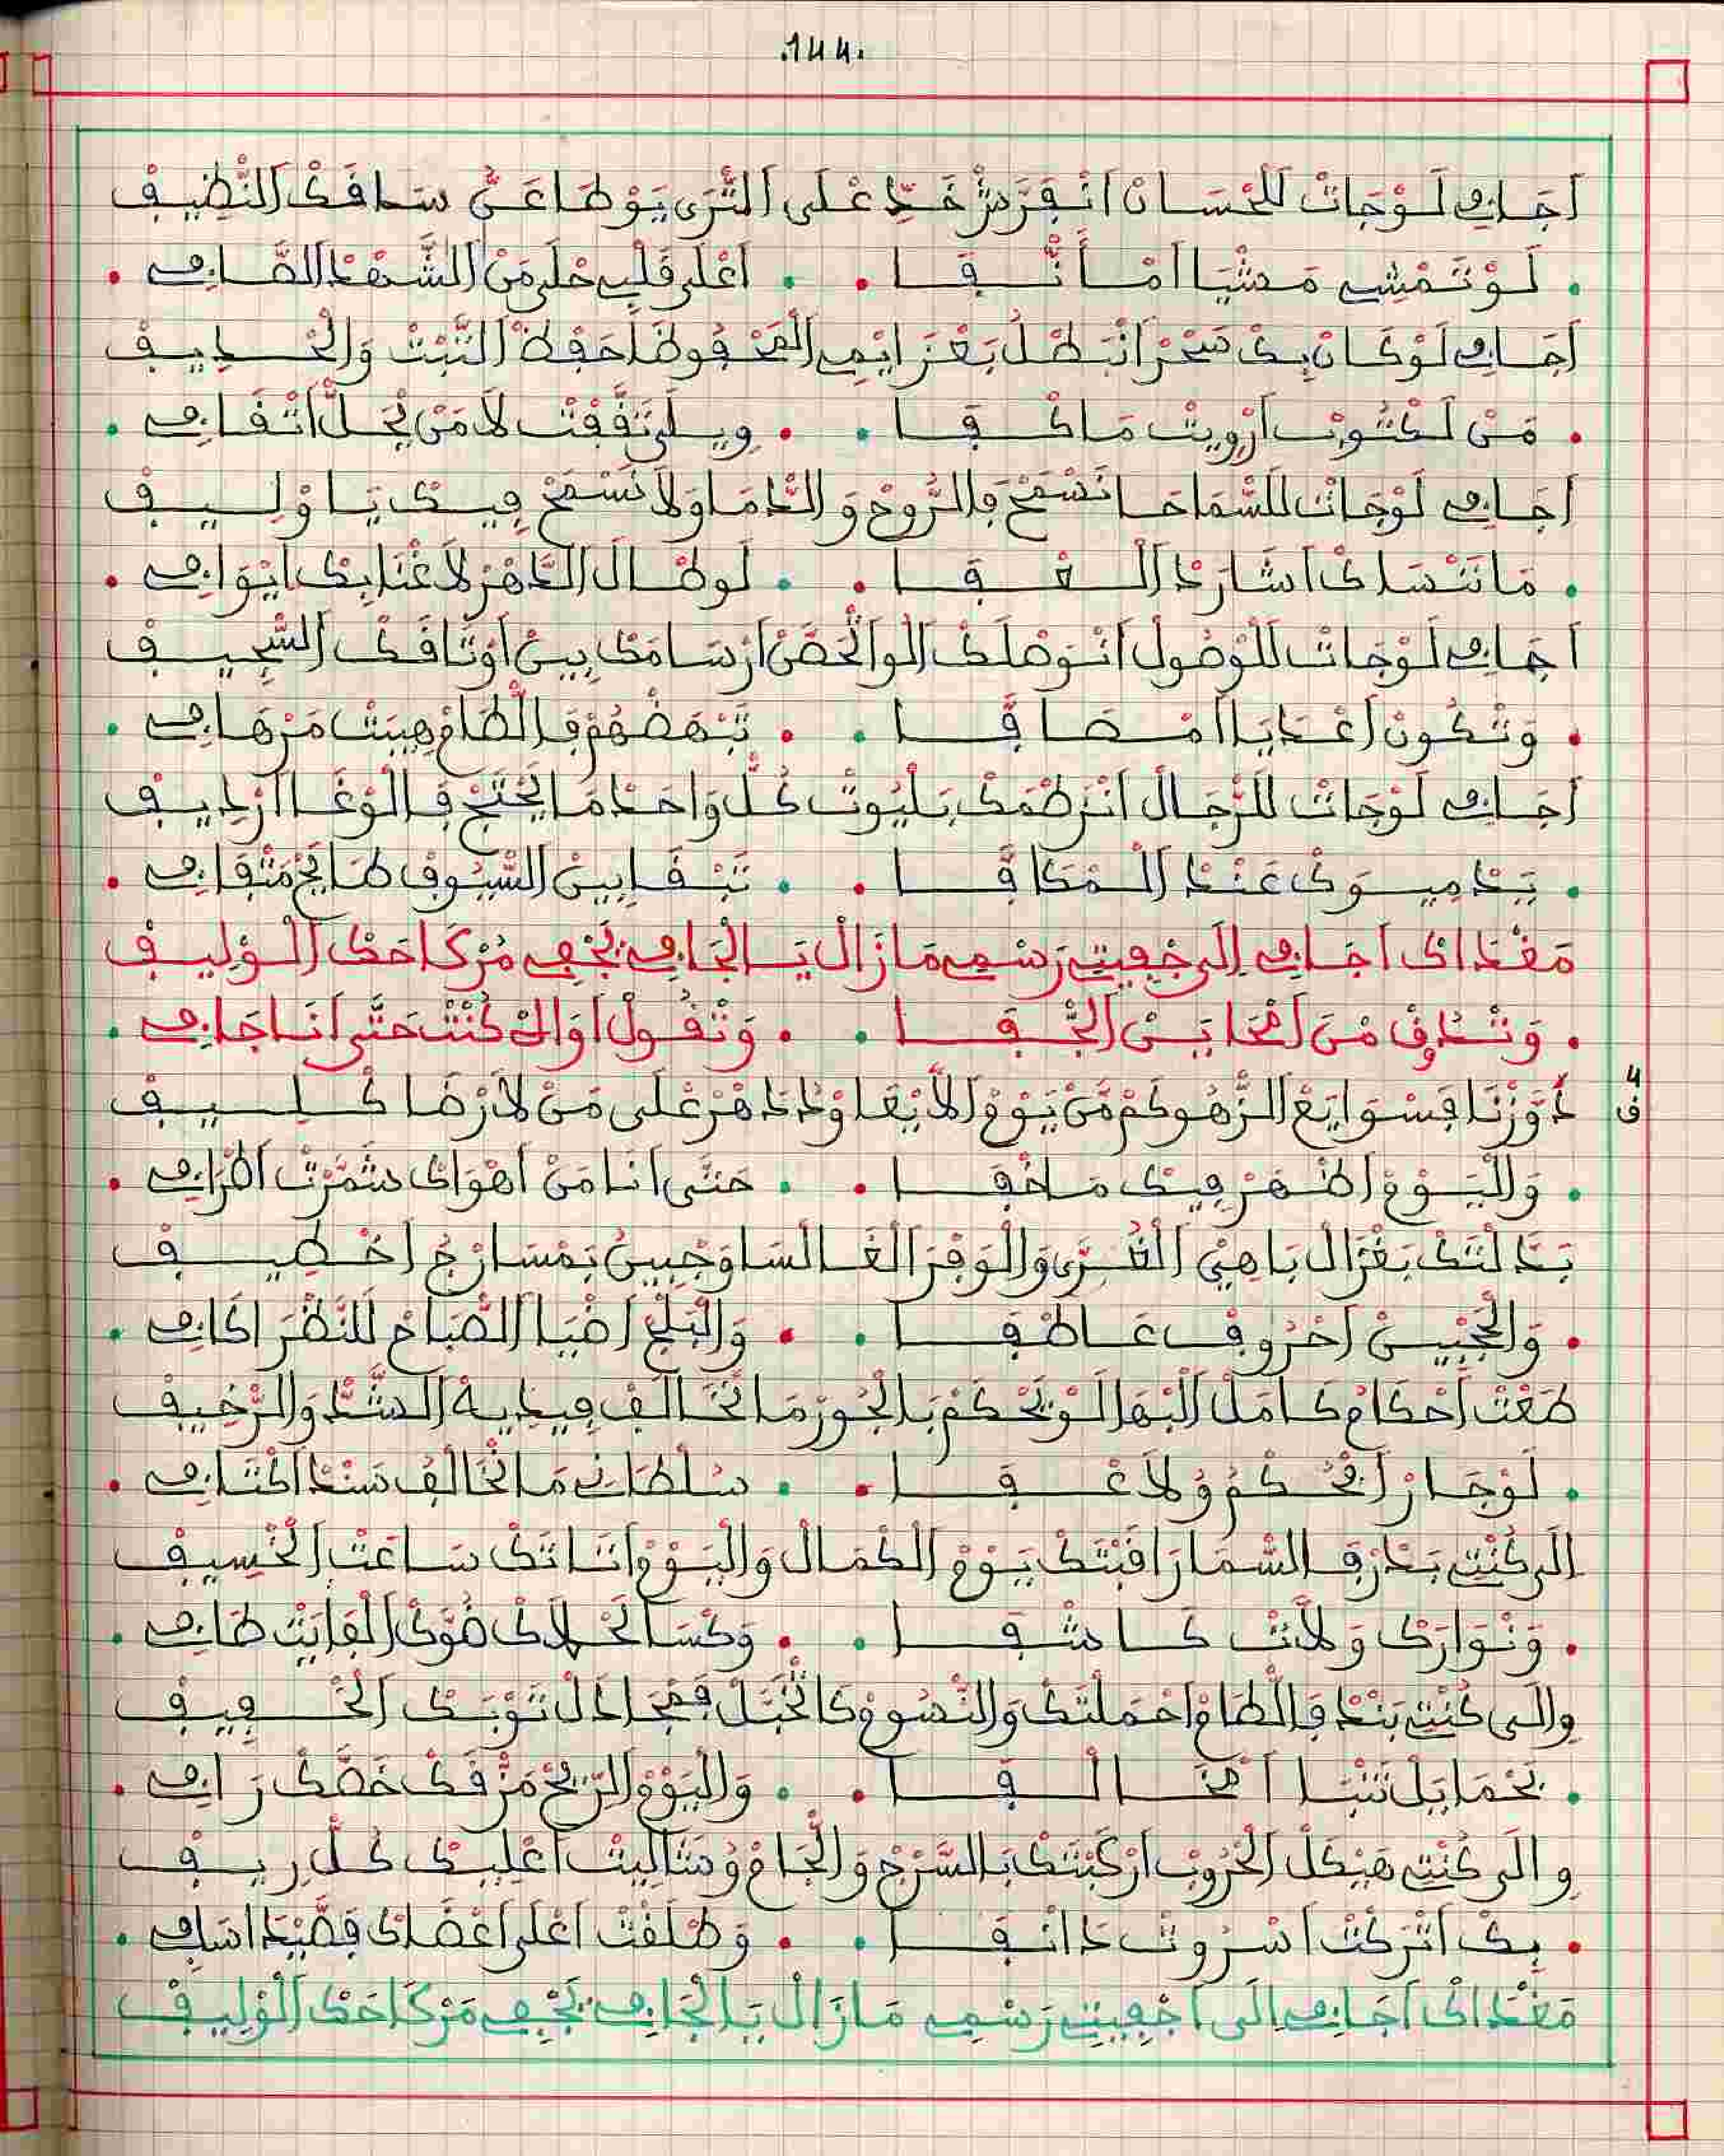 .144.
أَجَافِي لَوْجَاتْ لَلْحْسَانْ انْفَرَّشْ خَدِّ عْلَى التَّرَى يَوْطَا عَنُّ سَاقَكْ النّْظِيفْ
لَوْ تَمْشِي مَشْيَا امْأَنّْفَا . . اعْلَى قَلْبِي حْلَى مَنْ الشَّهْدْ الصَّافِي
أَجَافِي لَوْ كَانْ بِكْ سَحْرْ انْبَطْلُ بَعْزَايْمِي الْمَحْفُوظَا حَفْظْ التَّبْتْ وَالْحْدِيفْ
مَنْ لَكْتُوبْ ارْوِيتْ مَا كْفَا . . وِيلَى تَقَّفْتْ لَا مَنْ يْحَلّْ اتْقَافِي
أَجَافِي لَوْجَاتْ لَلسّْمَاحَا نَسْمَحْ فَالرُّوحْ وَالدّْمَا وَلَا نَسْمَحْ فِيكْ يَا وْلِيفْ
مَا نَنْسَاكْ اشَارَدْ الْعْفَا . . لَوْ طَالْ الدّْهَرْ لَاغْنَا بِكْ ايْوَافِي
أَجَافِي لَوْجَاتْ لَلْوْصُولْ انْوَصْلَكْ الْوَالْحْصَنْ ارْسَامَكْ بِينْ اوْتَاقَكْ السّْجِيفْ
وَتْكُونْ اعْدَايَا امْصَافّْفَا . . تَبْهَضْهُمْ فَالْطَامْ هِيبَتْ مَرْهَافِي
أَجَافِي لَوْجَاتْ لَلرّْجَالْ انْزَطْمَكْ بَلْيُوتْ كُلّْ وَاحَدْ مَا يَحْتَجْ فَالْوْغَا ارْدِيفْ
يَدْمِيوَكْ عَنْدْ الْمْكَافّْفَا . . تَبْقَا بِينْ السّْيُوفْ طَايَحْ مَتْفَافِي
مَقْدَاكْ اجَافِي إِلَى جْفِيتِي رَسْمِي مَازَالْ يَا الْجَافِي نَجْفِي مُرْكَاحَكْ الْوْلِيفْ
وَتْدُوفْ مْنَ امْحَايَنْ الجّْفَا . . وَتْقُولْ اوَالْ كُنْتْ حَتَّى انَا جَافِي
4
ف
دَوَّزْنَا فَسْوَايَعْ الزّْهُو كَمْ مَنْ يَوْمْ الَّا يْقَاوْدْ دَهْرْ عْلَى مَنْ لَارْضَا كْلِيفْ
وَالْيَوْمْ اظْهَرْ فِيكْ مَا خْفَا . . حَتَّى انَا مَنْ اهْوَاكْ شَمَّرْتْ اطْرَافِي
بَدَّلْتَكْ بَغْزَالْ بَاهِيْ الْغُرَّى وَالْوَفْرَ الْغَالْسَا وَجْبِينْ بَمْسَارْجُ اخْطِيفْ
وَالْحَجْبِينْ احْرُوفْ عَاطْفَا . . وَالْبَلْجْ اضْيَا الصّْبَاحْ لَلنَّظْرَ اكَافِي
طَعْتْ أَحْكَامْ كَامَلْ الْبْهَا لَوْ يَحْكَمْ بَالْجُورْ مَا نْخَالَفْ فِيدِيهْ الشَّدّْ وَالرّْخِيفْ
لَوْ جَارْ احْكَمْ وُلَاعْفَا . . سُلْطَانِي مَا نْخَالَفُ سَنْدْ اكْتَافِي
إِلَى كُنْتِ بَدْرْ فَالسّْمَا رَاقَبْتَكْ يَوْمْ الْكْمَالْ وَالْيَوْمْ اتَّاتَكْ سَاعَتْ الْخْسِيفْ
وَنْوَارَكْ وَلَّاتْ كَاشْفَا . . وَكْسَا لَحْلَاكْ ضُوَّكْ الْفَايَتْ طَافِي
وِالَى كُنْتِ بَنْدْ فَالْطَامْ احْمَلْتَكْ وَالنّْصُومْ كَاتْخَبَّلْ فَمْجَادَلْ تَوْبَكْ الْخْفِيفْ
بَحْمَايَلْ تَتْنَا امْخَالْفَا . . وَالْيَوْمْ الرِّيحْ مَزّْقَكْ خَصَّكْ رَافِي
وِالَى كُنْتِ هَيْكَلْ الْحْرُوبْ ارْكَبْتَكْ بَالسَّرْجْ وَالْجَامْ وُشَالِيتْ اعْلِيكْ كُلّْ رِيفْ
بِكْ اتْرَكْتْ اسْرُوتْ دَانْفَا . . وَطْلَقْتْ اعْلَى اعْضَاكْ قَصَّيْدَ اسَافِي
مَقْدَاكْ اجَافِي إِلَى اجْفِيتِي رَسْمِي مَازَالْ يَا الْجَافِي نَجْفِي مَرْكَاحَكْ الْوْلِيفْ